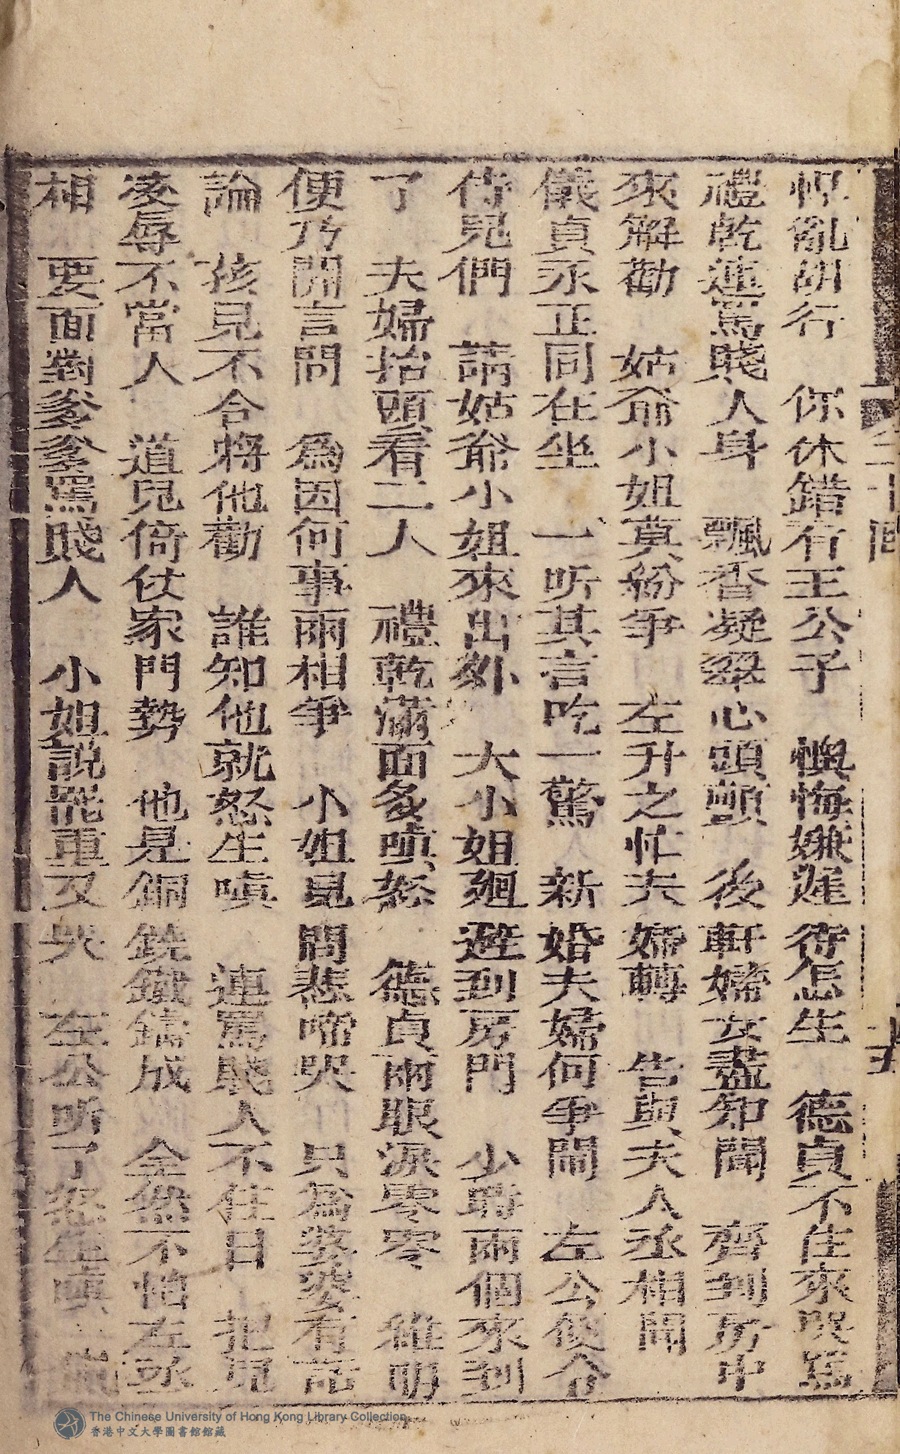 二十回
十五
悍亂胡行　你休錯有王公子　懊悔嫌遲待怎生　德貞不住來哭罵
禮乾連罵賤人身　飄香凝翠心頭顫　後軒婦女盡知聞　齊到房中
來解勸　姑爺小姐莫紛爭　左升之忙夫婦轉　告與夫人丞相聞
儀貞丞正同在坐　一听其言吃一驚　新婚夫婦何爭鬧　左公便令
侍兒們　請姑爺小姐來出外　大小姐廻避到房門　少時兩個來到
了　夫婦抬頭看二人　禮乾滿面多嗔怒　德貞兩眼淚零零　維明
便乃開言問　為因何事兩相爭　小姐見問悲啼哭　只為婆婆有話
論　孩兒不合將他勸　誰知他就怒生嗔　連罵賤人不住口　把兒
凌辱不當人　道兒倚仗家門勢　他是銅銑鐵鑄成　全然不怕左丞
相　要面對爹爹罵賤人　小姐說罷重又哭　左公听了怒生嗔
The Chinese University of Hong Kong Library Collection
香港中文大學圖書館館藏